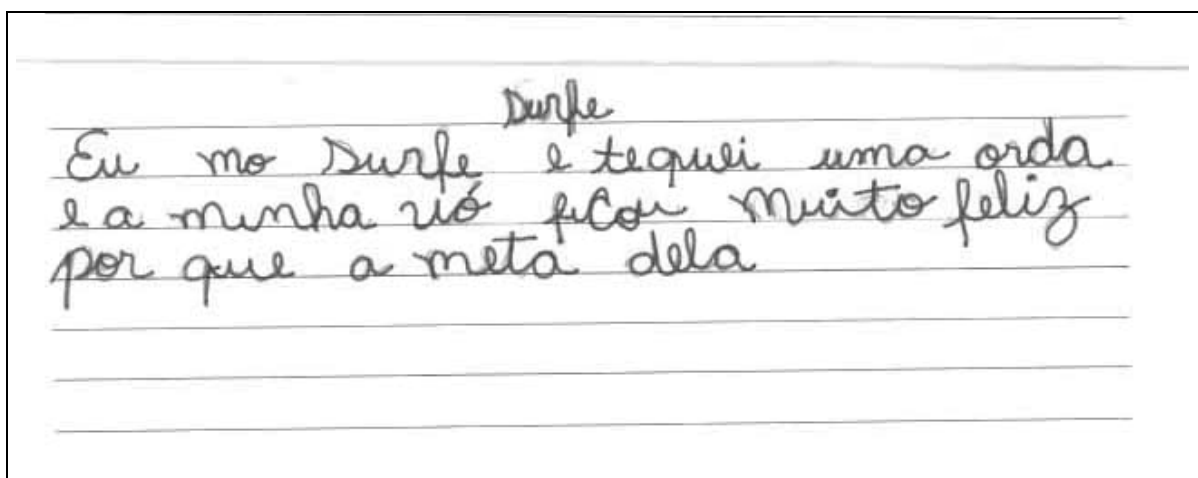 Surfe
Eu mo Surfe e tequei uma orda
e a minha vó ficou muito feliz
por que a meta dela